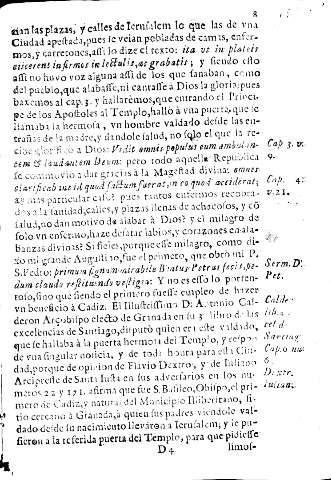 8
cian las plazas, y calles de Ierusalem lo que las de vna
Ciudad apestada, pues le veian pobladas de camas, enfer-
mos, y carretones, assi lo dize el texto: ita vt in plateis
eiicerent infirmos in lectulis, ac grabatis; y siendo esto
assi no huvo voz alguna assi de los que sanaban, como
del pueblo, que alabasse, ni cantasse à Dios la gloria; pues
baxemos al cap. 3. y hallarémos, que entrando el Princi-
pe de los Apostoles al Templo, hallò à vna puerta, que le
llamaba la hermosa, vn hombre valdado desde las en-
trañas de la madre, y dandole salud, no solo el que la re-
cibe glorifico à Dios: Vidit omnis populus eum ambulan-
tem & laudantem Deum: pero todo aquella Republica
se commoviò a dar gracias à la Magestad divina: omnes
clarificabant id quod factum fuerat, in eo quod acciderat;
ay mas particular caso! pues tantos enfermos recobra-
dos a la sanidad, calles, y plazas llenas de achacosos, y cõ
salud, no dan motivo de alabar à Dios? y el milagro de
solo vn enfermo, haze desatar labios, y corazones en ala-
banzas divinas! Si fieles, porque esse milagro, como di-
xo mi grande Augustino, fue el primero, que obrò mi P.
S. Pedro: primum signum mirabile Beatus Petrus fecit, pe-
dum claudo restituendo vestigia: Y no es esso lo porten-
toso, sino que siendo el primero fuesse empleo de hazer
vn beneficio à Cadiz. El Illustrissimo D. Antonio Cal-
deron Arçobispo electo de Granada en su 3. libro de las
excelencias de Santiago, disputò quien era este valdado,
que se hallaba à la puerta hermosa del Templo, y respon
de vna singular noticia, y de toda honra para esta Ciu-
dad, porque de opinion de Flavio Dextro, y de Iuliano
Arcipreste de Santa Iusta en sus adversarios en los nu-
meros 22 y 171. afirma que fue S. Basileo, Obispo, el pri-
mero de Cadiz, y natural del Municipio Illiberitano, si-
tio cercano à Granada, à quien sus padres viendole val-
dado desde su nacimiento llevaron a Ierusalem; y le pu-
sieron a la referida puerta del Templo, para que pidiesse
D 4
limos-
Cap. 3. v.
9.
Cap. 4.
v. 21.
Serm. D.
Pet.
Calde-
lib.